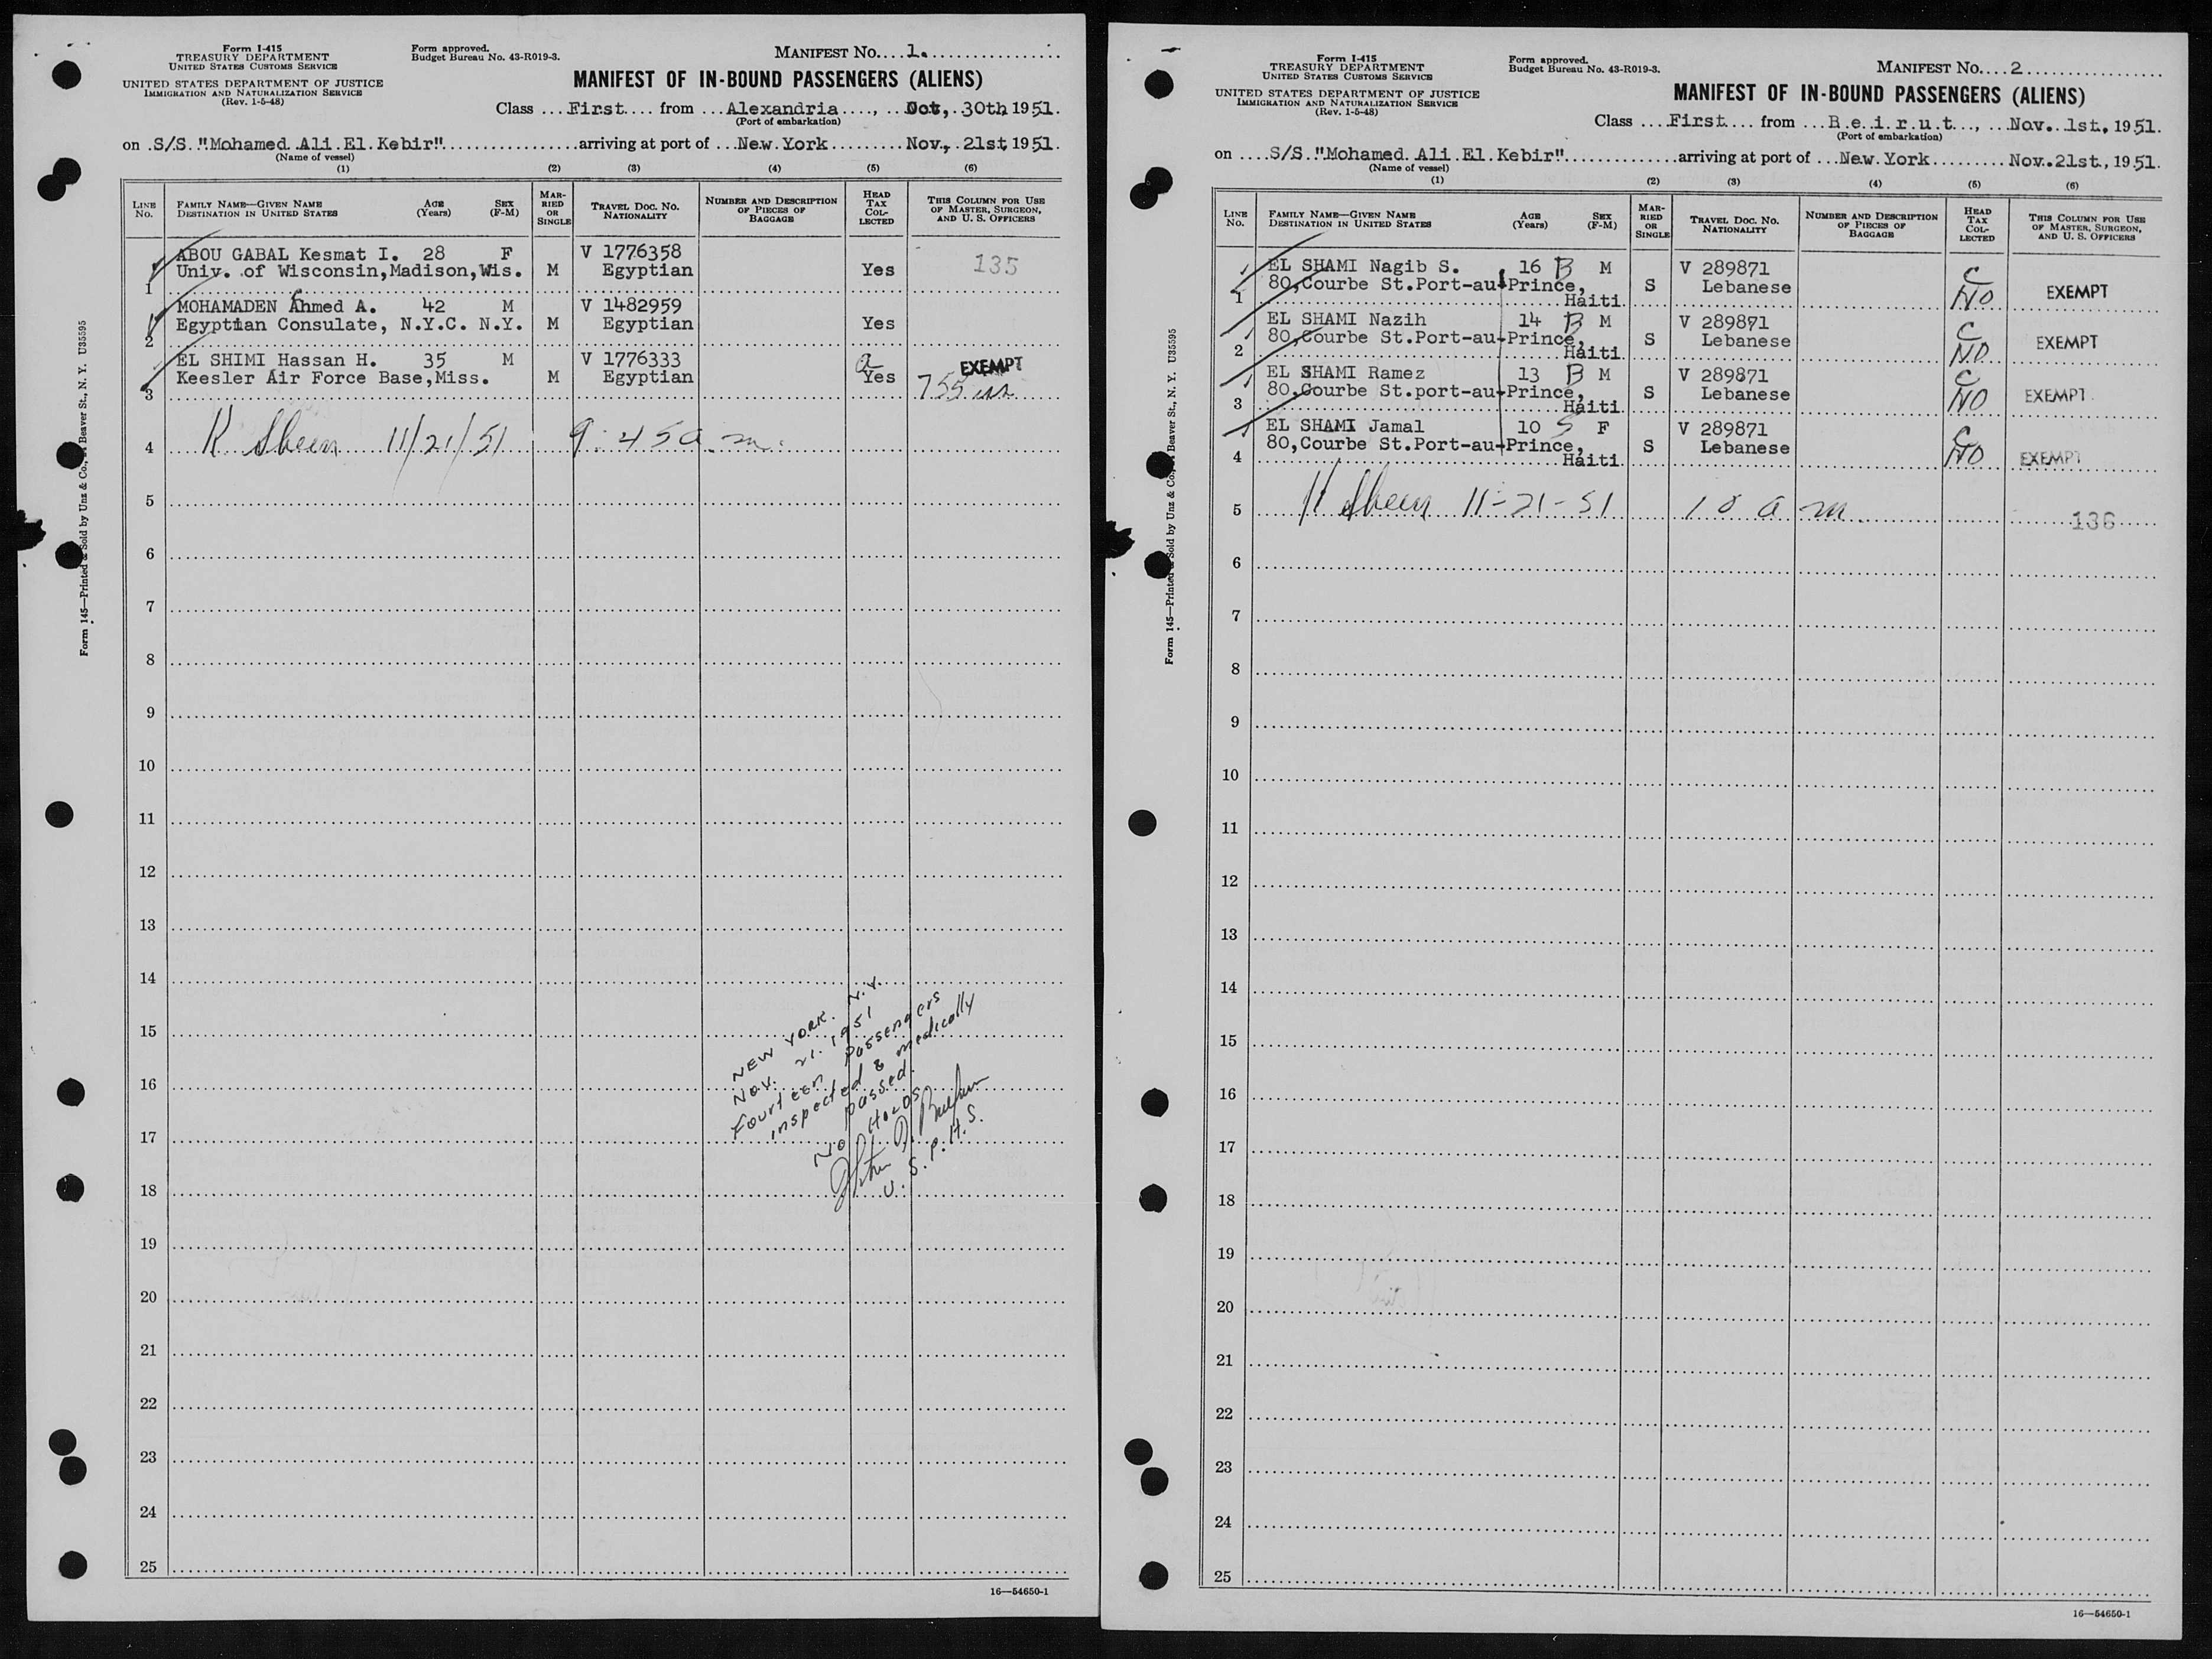 Form I-415
TREASURY DEPARTMENT
UNITED STATES CUSTOMS SERVICE
UNITED STATES DEPARTMENT OF JUSTICE
IMMIGRATION AND NATURALIZATION SERVICE
(Rev. 1-5-48)
Form approved.
Budget Bureau No. 43-R019-3.
MANIFEST No. 1.
MANIFEST OF IN-BOUND PASSENGERS (ALIENS)
Class First from Alexandria, Oct, 30th, 1951.
(Port of embarkation)
on S/S. "Mohamed Ali El Kebir" arriving at port of New York Nov, 21st 1951.
(Name of vessel)
(1) (2) (3) (4) (5) (6)
LINE No. FAMILY NAME—GIVEN NAME DESTINATION IN UNITED STATES AGE (Years) SEX (F-M) MARRIED OR SINGLE TRAVEL DOC. No. NATIONALITY NUMBER AND DESCRIPTION OF PIECES OF BAGGAGE HEAD TAX COLLECTED THIS COLUMN FOR USE OF MASTER, SURGEON, AND U. S. OFFICERS
ABOU GABAL Kesmat I. 28 F V 1776358
1 Univ. of Wisconsin, Madison, Wis. M Egyptian Yes 135
MOHAMADEN Ahmed A. 42 M V 1482959
2 Egyptian Consulate, N.Y.C. N.Y. M Egyptian Yes
EL SHIMI Hassan H. 35 M V 1776333 a EXEMPT
3 Keesler Air Force Base, Miss. M Egyptian Yes 755
4 11/21/51 9:45 a.m.
5
6
7
8
9
10
11
12
13
14
15
16
17
18
19
20
21
22
23
24
25
NEW YORK. N.Y.
Nov. 21. 1951
Fourteen Passengers
inspected & medically
passed.
No Holds
U. S. P. H. S.
Form 145—Printed & Sold by Unz & Co., Beaver St., N. Y. U35595
16—54650-1
Form I-415
TREASURY DEPARTMENT
UNITED STATES CUSTOMS SERVICE
UNITED STATES DEPARTMENT OF JUSTICE
IMMIGRATION AND NATURALIZATION SERVICE
(Rev. 1-5-48)
Form approved.
Budget Bureau No. 43-R019-3.
MANIFEST No. 2
MANIFEST OF IN-BOUND PASSENGERS (ALIENS)
Class First from Beirut, Nov. 1st, 1951.
(Port of embarkation)
on S/S. "Mohamed Ali El Kebir" arriving at port of New York Nov. 21st, 1951.
(Name of vessel)
(1) (2) (3) (4) (5) (6)
LINE No. FAMILY NAME—GIVEN NAME DESTINATION IN UNITED STATES AGE (Years) SEX (F-M) MARRIED OR SINGLE TRAVEL DOC. No. NATIONALITY NUMBER AND DESCRIPTION OF PIECES OF BAGGAGE HEAD TAX COLLECTED THIS COLUMN FOR USE OF MASTER, SURGEON, AND U. S. OFFICERS
EL SHAMI Nagib S. 16 B M V 289871 C
80, Courbe St. Port-au-Prince, S Lebanese NO EXEMPT
1 Haiti
EL SHAMI Nazih 14 B M V 289871 C
80, Courbe St. Port-au-Prince, S Lebanese NO EXEMPT
2 Haiti
EL SHAMI Ramez 13 B M V 289871 C
80, Courbe St. port-au-Prince, S Lebanese NO EXEMPT
3 Haiti
EL SHAMI Jamal 10 S F V 289871 C
80, Courbe St. Port-au-Prince, S Lebanese NO EXEMPT
4 Haiti
5 11-21-51 10 a m 136
6
7
8
9
10
11
12
13
14
15
16
17
18
19
20
21
22
23
24
25
Form 145—Printed & Sold by Unz & Co., Beaver St., N. Y. U35595
16—54650-1